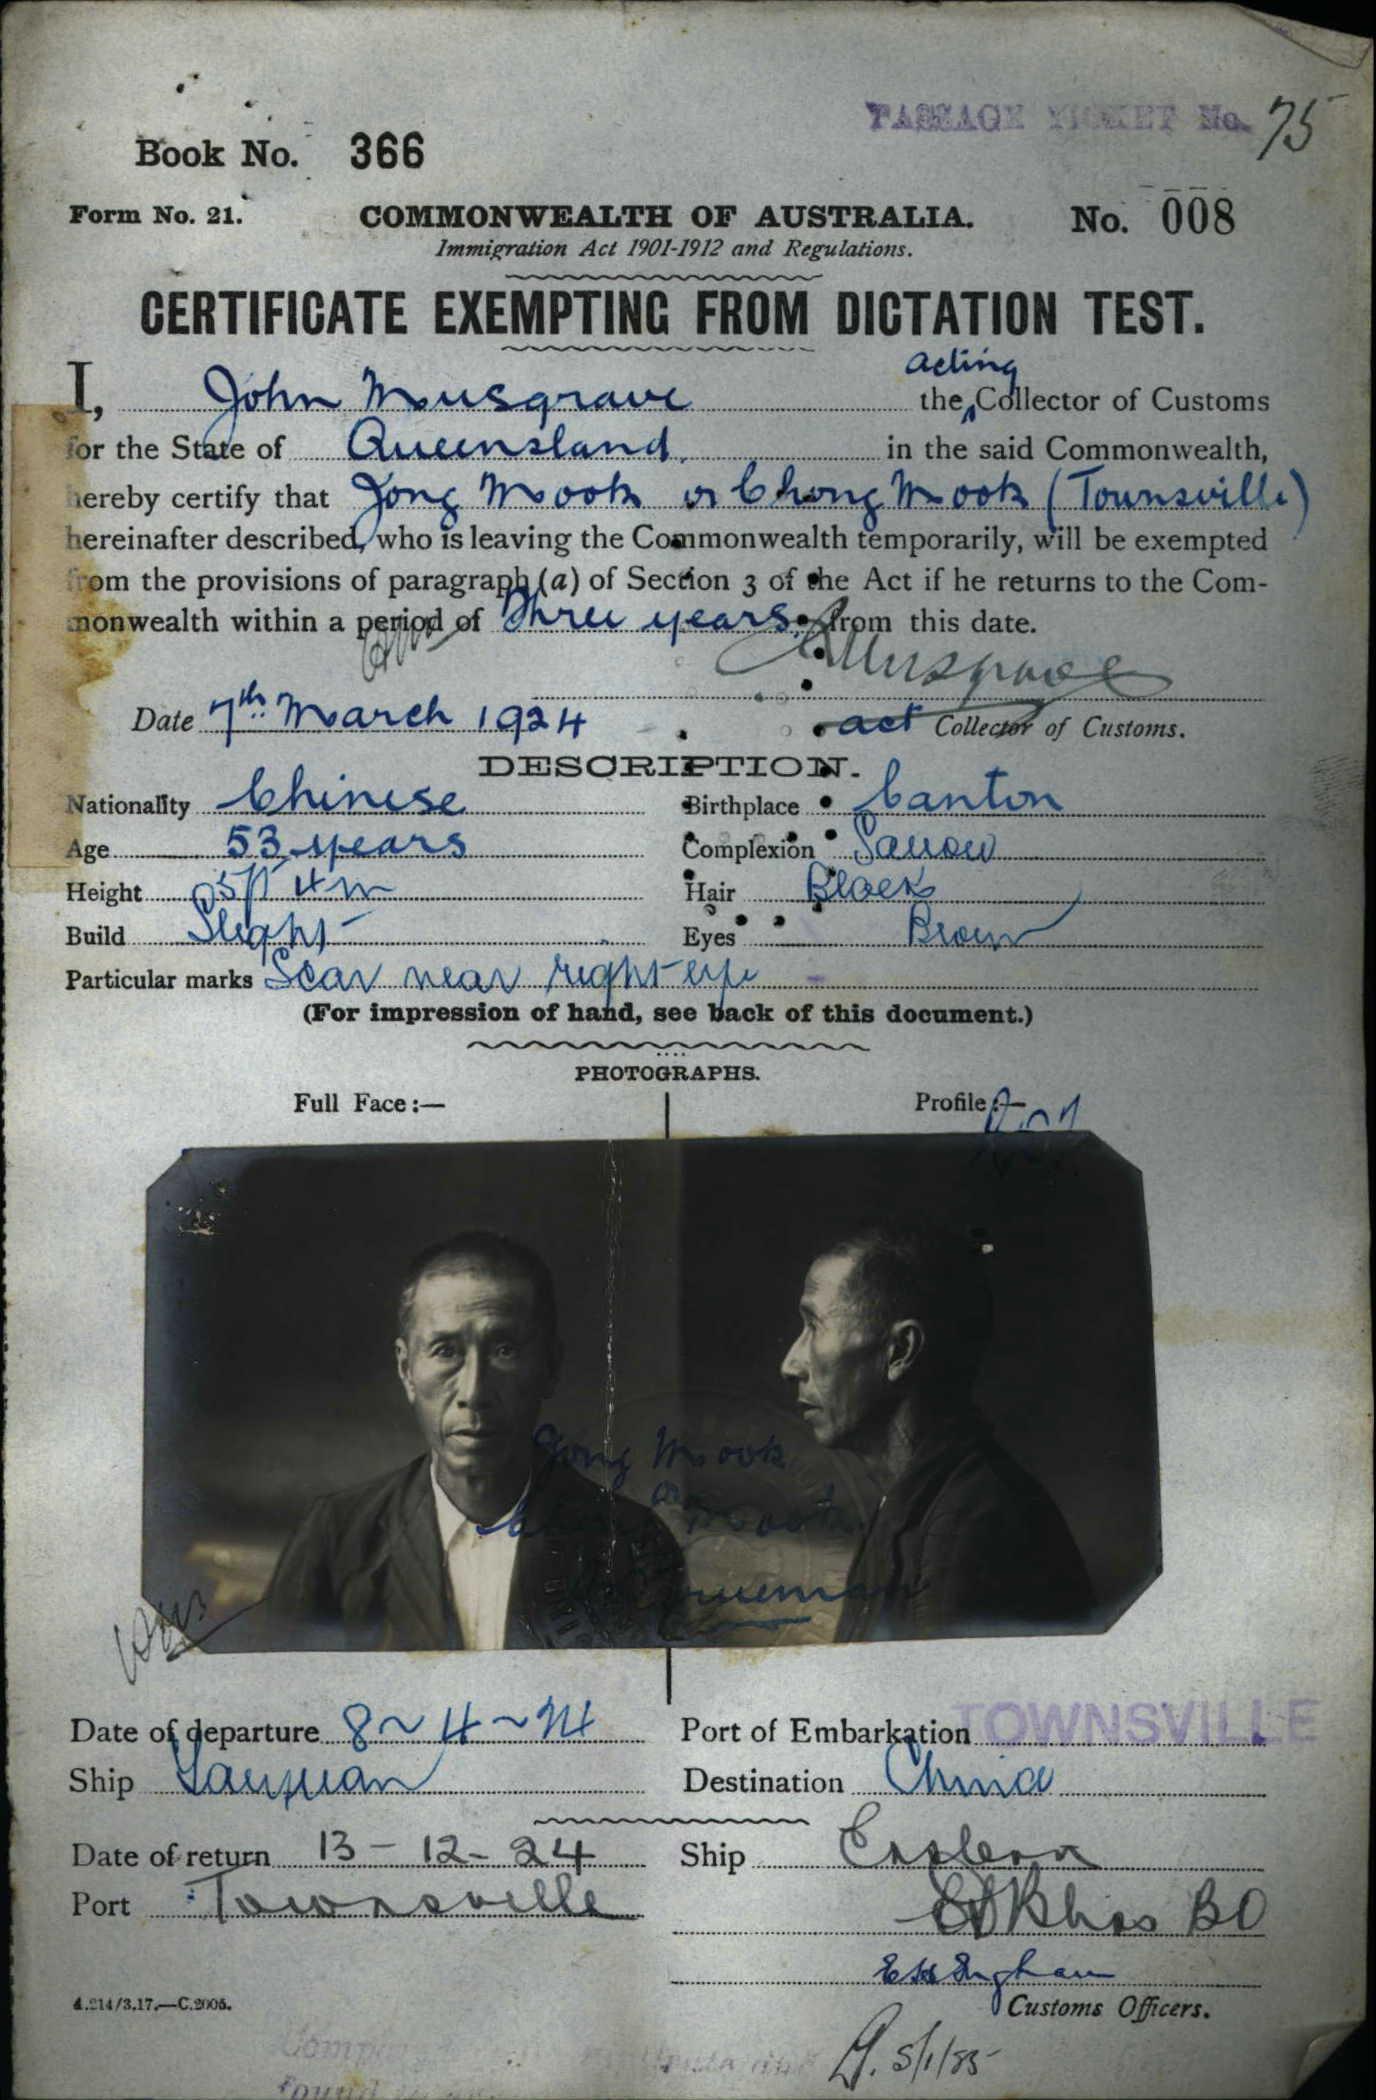 PASSAGE TICKET No. 75
Book No. 366
Form No. 21. COMMONWEALTH OF AUSTRALIA. No. 008
Immigration Act 1901-1912 and Regulations.
CERTIFICATE EXEMPTING FROM DICTATION TEST.
acting
I, John Musgrave the Collector of Customs
for the State of Queensland. in the said Commonwealth,
hereby certify that Jong Mook or Chong Mook (Townsville)
hereinafter described, who is leaving the Commonwealth temporarily, will be exempted
from the provisions of paragraph (a) of Section 3 of the Act if he returns to the Com-
monwealth within a period of Three years. from this date.
Musgrave
Date 7th March 1924 act Collector of Customs.
DESCRIPTION.
Nationality Chinese Birthplace Canton
Age 53 years Complexion Sallow
Height 5ft 4in Hair Black
Build Slight Eyes Brown
Particular marks Scar near right eye
(For impression of hand, see back of this document.)
PHOTOGRAPHS.
Full Face:— Profile:—
Jong Mook
or
Chong Mook
Date of departure 8-4-24 Port of Embarkation TOWNSVILLE
Ship Taiyuan Destination China
Date of return 13-12-24 Ship Eastern
Port Townsville
BO
Customs Officers.
4.214/3.17.—C.2005.